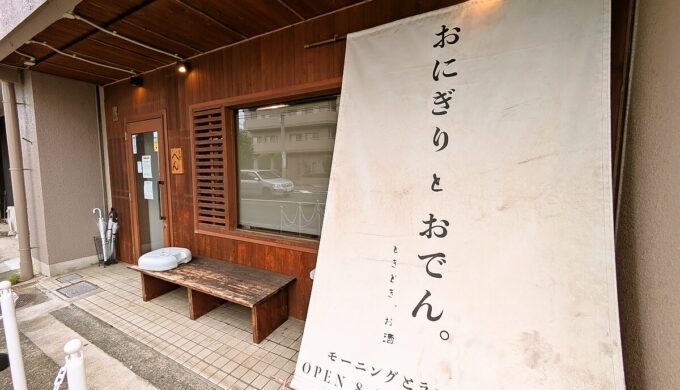 おにぎり と おでん。
ときどき、お酒
モーニングとラ
OPEN 8
ぺん